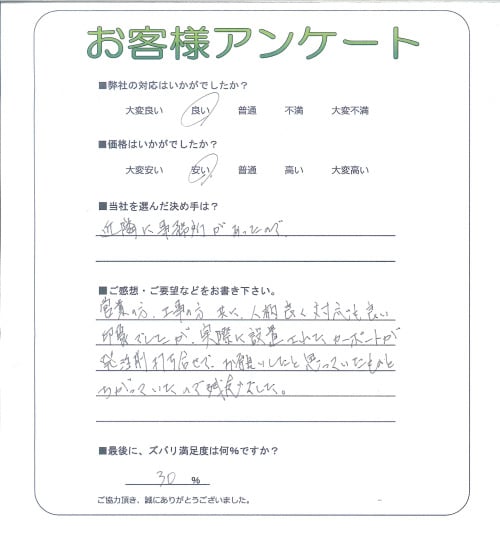 お客様アンケート
■弊社の対応はいかがでしたか？
大変良い 良い 普通 不満 大変不満
■価格はいかがでしたか？
大変安い 安い 普通 高い 大変高い
■当社を選んだ決め手は？
近隣に事務所があったので。
■ご感想・ご要望などをお書き下さい。
営業の方、工事の方 共に、人柄良く対応も良い
印象でしたが、実際に設置されたカーポートが
発注前打ち合せで、お願いしたと思っていたものと
ちがっていたので残念でした。
■最後に、ズバリ満足度は何%ですか？
30 %
ご協力頂き、誠にありがとうございました。